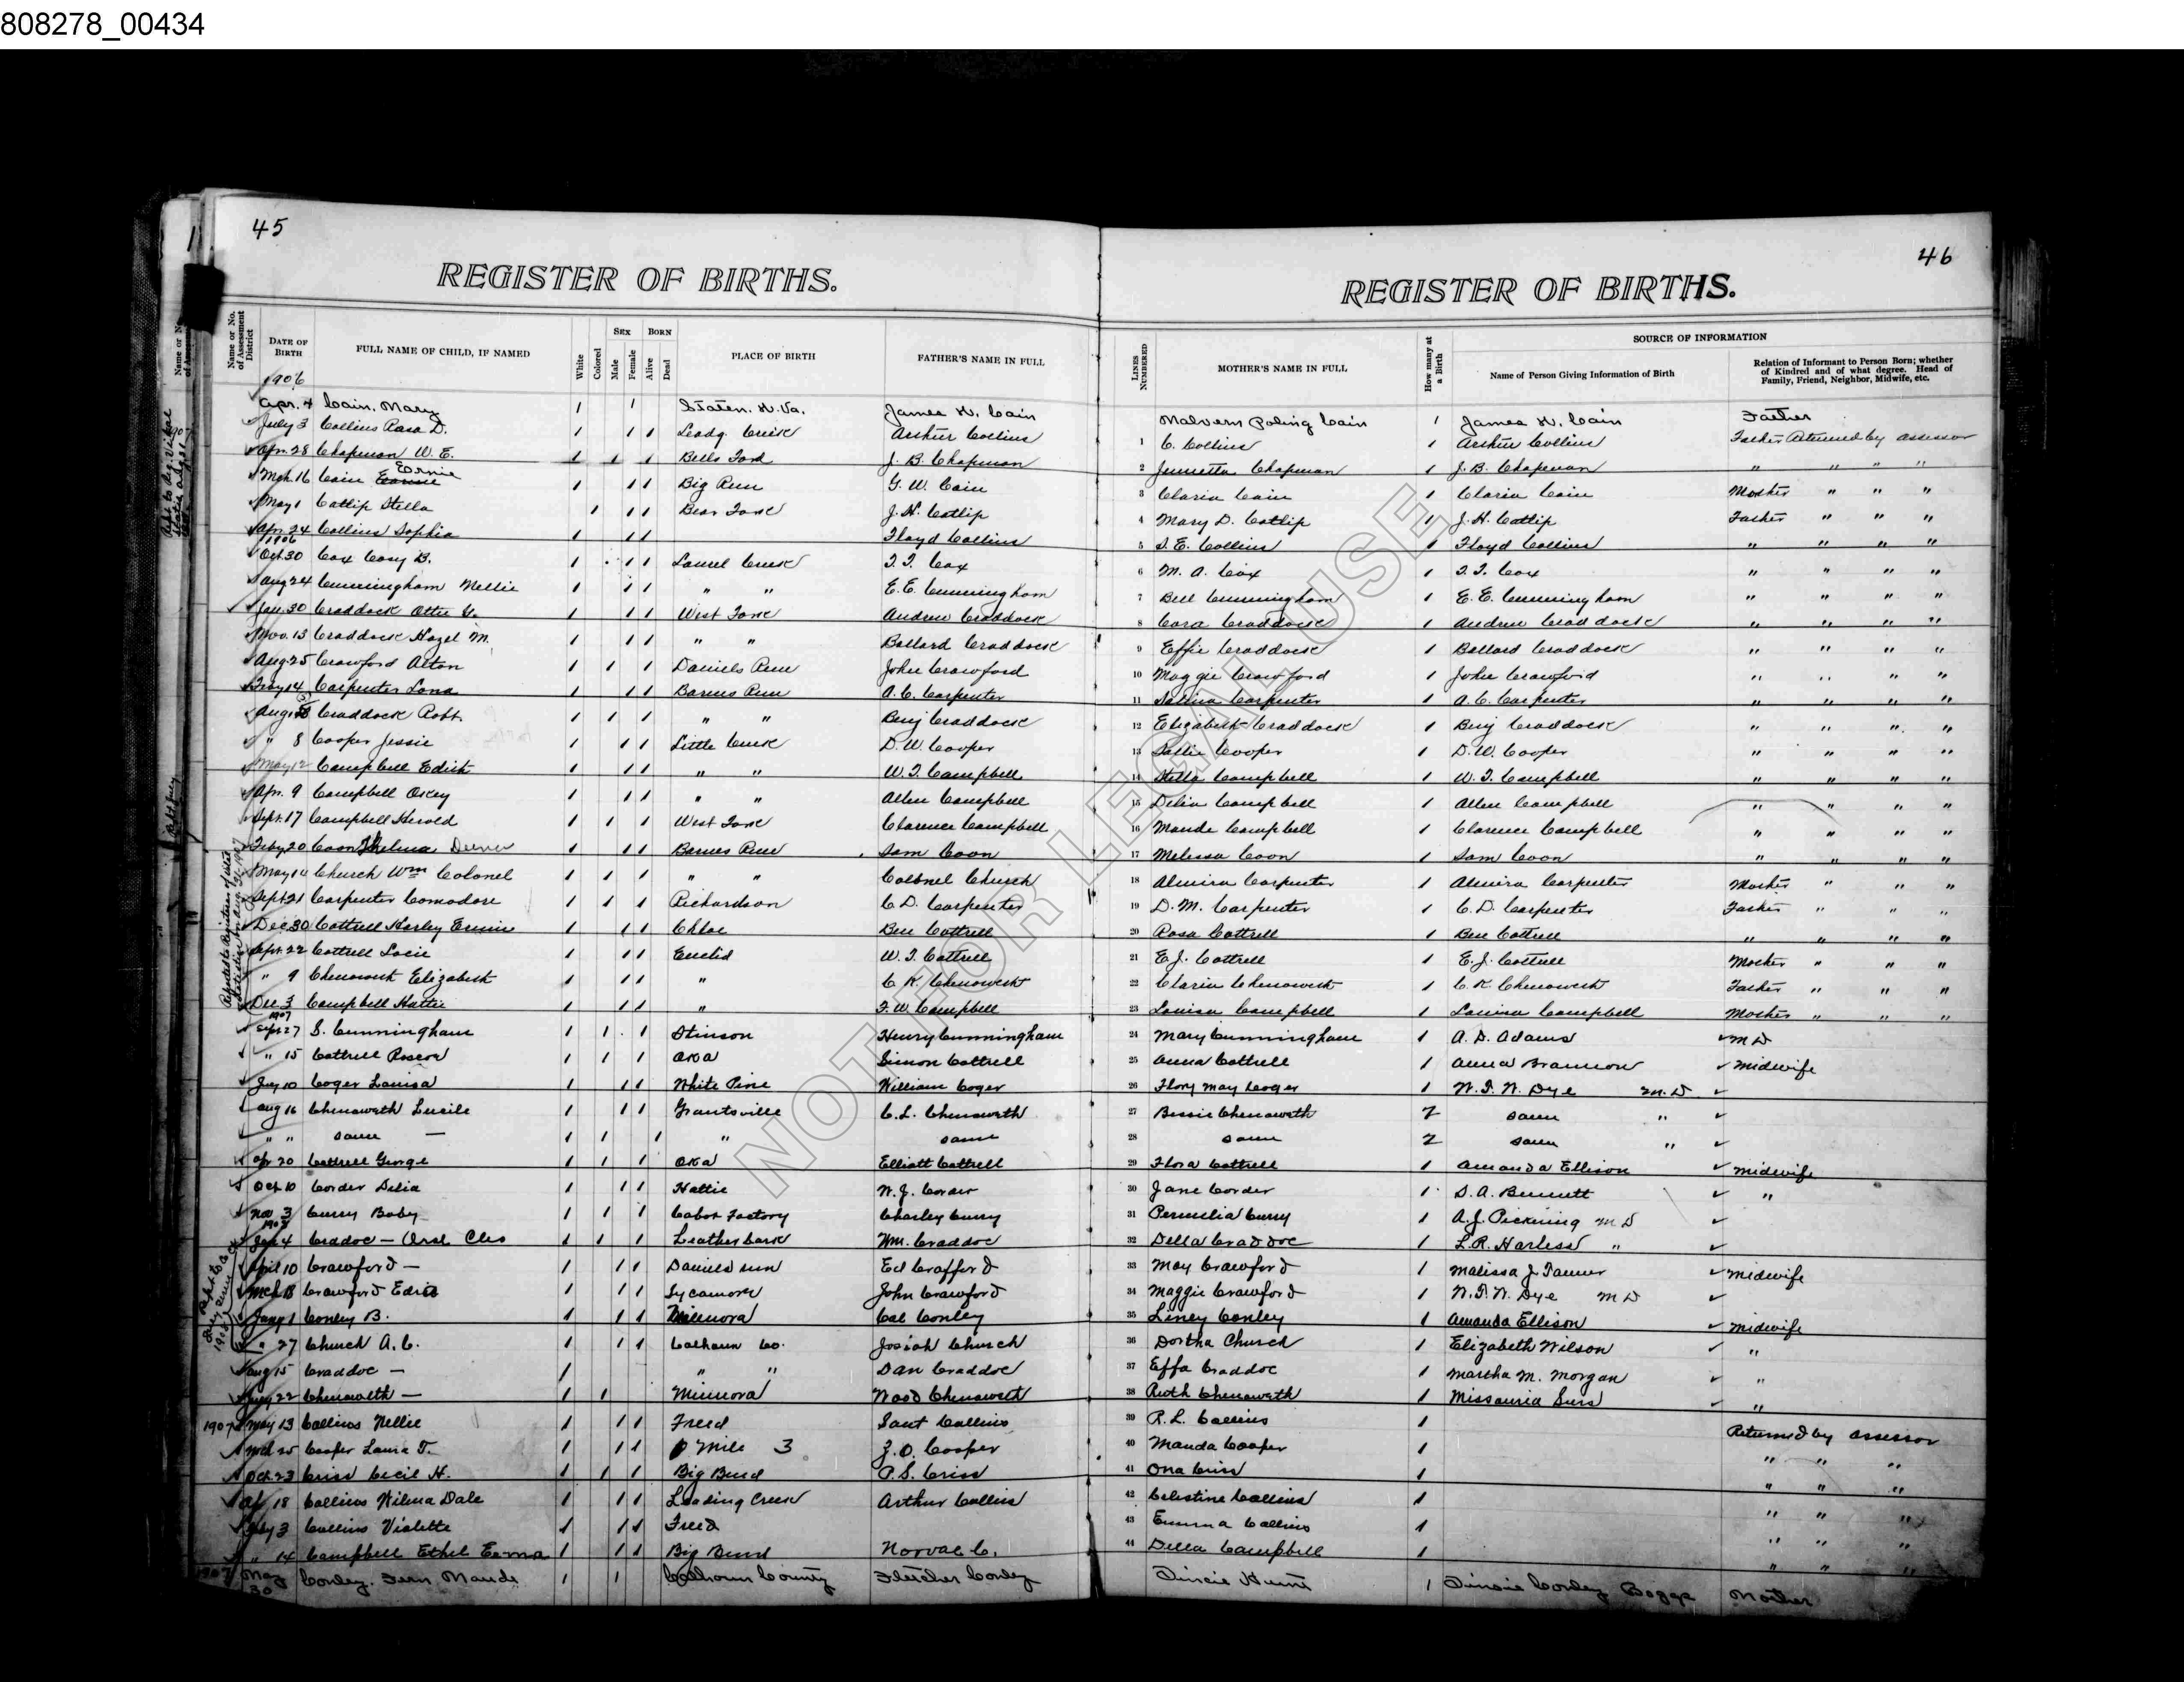 808278_00434
45
REGISTER OF BIRTHS.
46
REGISTER OF BIRTHS.
Name or No. of Assessment District
DATE OF BIRTH
FULL NAME OF CHILD, IF NAMED
White
Colored
SEX
Male
Female
BORN
Alive
Dead
PLACE OF BIRTH
FATHER'S NAME IN FULL
LINES NUMBERED
MOTHER'S NAME IN FULL
How many at a Birth
SOURCE OF INFORMATION
Name of Person Giving Information of Birth
Relation of Informant to Person Born; whether of Kindred and of what degree. Head of Family, Friend, Neighbor, Midwife, etc.
1906
Apr. 4 Cain, Mary 1 1 Staten. W. Va. James W. Cain Malvern Poling Cain 1 James W. Cain Father
July 3 Collins Rasa D. 1 1 1 Leadg. Creek Arthur Collins 1 C. Collins 1 Arthur Collins Father Returned by assessor
Apr. 28 Chapman W. E. 1 1 1 Bells Ford J. B. Chapman 2 Chapman 1 J. B. Chapman " " " "
Mch. 16 Cain Ernie 1 1 1 Big Run G. W. Cain 3 Claria Cain 1 Claria Cain Mother " " "
May 1 Catlip Stella 1 1 1 Bear Fork J. H. Catlip 4 Mary D. Catlip 1 J. H. Catlip Father " " "
Apr. 24 Collins Sophia 1 1 1 Floyd Collins 5 S. E. Collins 1 Floyd Collins " " " "
1906
Oct. 30 Cox Cosy B. 1 1 1 Laurel Creek T. T. Cox 6 M. A. Cox 1 T. T. Cox " " " "
Aug 24 Cunningham Nellie 1 1 1 " " E. E. Cunningham 7 Bell Cunningham 1 E. E. Cunningham " " " "
Jan. 30 Craddock Otta 1 1 1 West Fork Andrew Craddock 8 Cora Craddock 1 Andrew Craddock " " " "
Nov. 13 Craddock Hazel M. 1 1 1 " " Ballard Craddock 9 Effie Craddock 1 Ballard Craddock " " " "
Aug. 25 Crawford Alton 1 1 1 Daniels Run John Crawford 10 Maggie Crawford 1 John Crawford " " " "
Feby 14 Carpenter Lona 1 1 1 Barnes Run A. C. Carpenter 11 Salina Carpenter 1 A. C. Carpenter " " " "
Aug. Craddock Robt. 1 1 1 " " Benj Craddock 12 Elizabeth Craddock 1 Benj Craddock " " " "
" 8 Cooper Jessie 1 1 1 Little Creek D. W. Cooper 13 Sallie Cooper 1 D. W. Cooper " " " "
May 12 Campbell Edith 1 1 1 " " W. T. Campbell 14 Stella Campbell 1 W. T. Campbell " " " "
Apr. 9 Campbell Oskey 1 1 1 " " Allen Campbell 15 Delia Campbell 1 Allen Campbell " " " "
Sept. 17 Campbell Harold 1 1 1 West Fork Clarence Campbell 16 Maude Campbell 1 Clarence Campbell " " " "
Feby 20 Coon Thelma 1 1 1 Barnes Run Sam Coon 17 Melissa Coon 1 Sam Coon " " " "
May 14 Church Wm Colonel 1 1 1 " " Colonel Church 18 Almira Carpenter 1 Almira Carpenter Mother " " "
Sept. 21 Carpenter Comodore 1 1 1 Richardson C. D. Carpenter 19 D. M. Carpenter 1 C. D. Carpenter Father " " "
Dec. 30 Cottrell Harley Ermin 1 1 1 Chloe Ben Cottrell 20 Rosa Cottrell 1 Ben Cottrell " " " "
Sept. 22 Cottrell Locie 1 1 1 Euclid W. T. Cottrell 21 E. J. Cottrell 1 E. J. Cottrell Mother " " "
" 9 Chenoweth Elizabeth 1 1 1 " C. K. Chenoweth 22 Claria Chenoweth 1 C. K. Chenoweth Father " " "
Dec. 3 Campbell Hattie 1 1 1 " F. W. Campbell 23 Louisa Campbell 1 Louisa Campbell Mother " " "
1907
Sept 27 S. Cunningham 1 1 1 Stinson Henry Cunningham 24 Mary Cunningham 1 A. D. Adams M D
" 15 Cottrell Roscoe 1 1 1 Oka Simon Cottrell 25 Anna Cottrell 1 Anna Brannon midwife
10 Coger Louisa 1 1 1 White Pine William Coger 26 Flory May Coger 1 W. T. W. Dye M. D.
Aug 16 Chenoweth Lucile 1 1 1 Grantsville C. L. Chenoweth 27 Bessie Chenoweth 2 same "
" " same — 1 1 1 " same 28 same 2 same "
Apr 20 Cottrell George 1 1 1 Oka Elliott Cottrell 29 Flora Cottrell 1 Amanda Ellison midwife
Oct 10 Corder Delia 1 1 1 Hattie W. J. Corder 30 Jane Corder 1 S. A. Bennett "
Nov 3 Curry Baby 1 1 1 Cabot Factory Charley Curry 31 Permelia Curry 1 A. J. Pickering M D
1908
Jan 4 Craddoc — Oral Cleo 1 1 1 Leatherbark Wm. Craddoc 32 Della Craddoc 1 L. R. Harless "
April 10 Crawford — 1 1 1 Daniels run Ed Crafford 33 May Crawford 1 Malissa J Tanner midwife
Mch 18 Crawford Edna 1 1 1 Sycamore John Crawford 34 Maggie Crawford 1 W. T. W. Dye M D
Jany 1 Conley B. 1 1 1 Minnora Cal Conley 35 Liney Conley 1 Amanda Ellison midwife
" 27 Church A. C. 1 1 1 Calhoun Co. Josiah Church 36 Dortha Church 1 Elizabeth Wilson "
Aug 15 Craddoc — 1 " " Dan Craddoc 37 Effa Craddoc 1 Martha M. Morgan "
22 Chenoweth — 1 1 Minnora Wood Chenoweth 38 Ruth Chenoweth 1 Missouria Sims "
1907 May 13 Collins Nellie 1 1 1 Freed Sant Collins 39 R. L. Collins 1 Returned by assessor
25 Cooper Laura T. 1 1 1 Mile 3 Z. O. Cooper 40 Manda Cooper 1 " " "
Oct. 23 Criss Cecil H. 1 1 1 Big Bend P. S. Criss 41 Ona Criss 1 " " "
Ap 18 Collins Wilma Dale 1 1 1 Leading Creek Arthur Collins 42 Celestine Collins 1 " " "
3 Collins Violette 1 1 1 Freed 43 Emma Collins 1 " " "
" 14 Campbell Ethel Erma 1 1 1 Big Bend Norval C. 44 Della Campbell 1 " " "
1907 May 30 Conley, Fern Maude 1 1 Calhoun County Fletcher Conley 1 Conley Boggs Mother
NOT FOR LEGAL USE